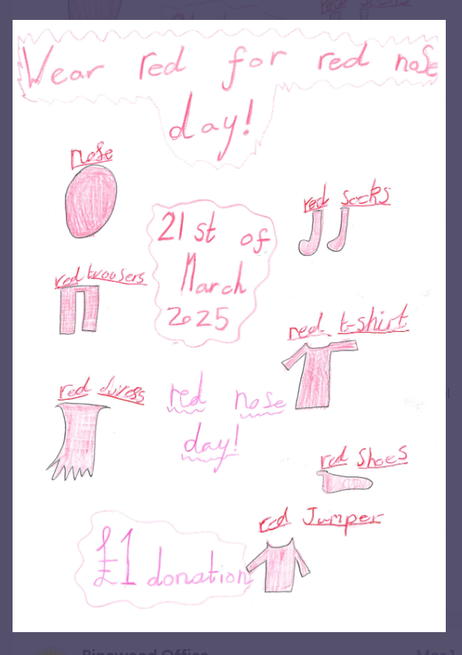 Wear red for red nose
day!
nose
red socks
21st of
March
2025
red trousers
red t-shirt
red dress
red nose
day!
red Shoes
red Jumper
£1 donation